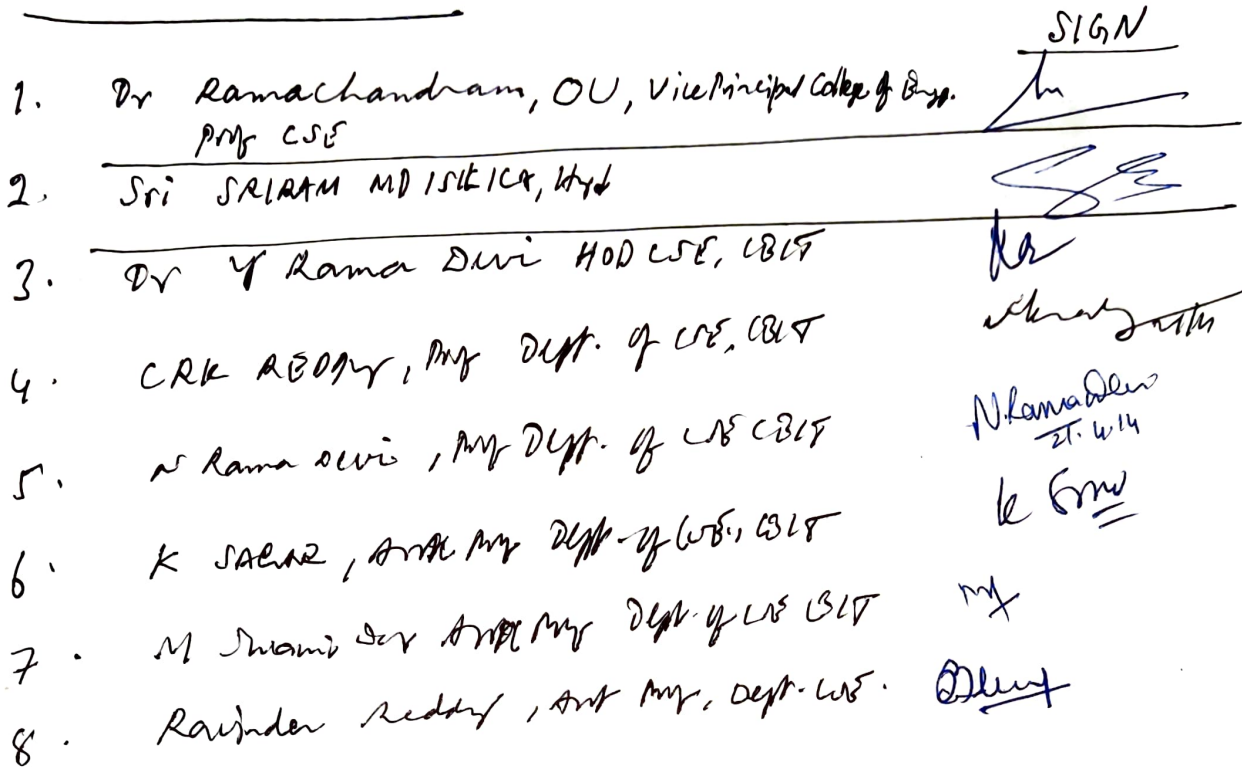 SIGN
1. Dr Ramachandram, OU, Vice Principal College of Engg.
Prof CSE
2. Sri SRIRAM MD Hyd
3. Dr Y Rama Devi HOD CSE, CBIT
4. CRK REDDY, Prof Dept. of CSE, CBIT
5. N Rama Devi, Prof Dept. of CSE CBIT
N.RamaDevi
21.4.14
6. K SAGAR, Prof Dept. of CSE, CBIT
7. M Dept. of CSE CBIT
8. Ravinder Reddy, Asst Prof, Dept. CSE.